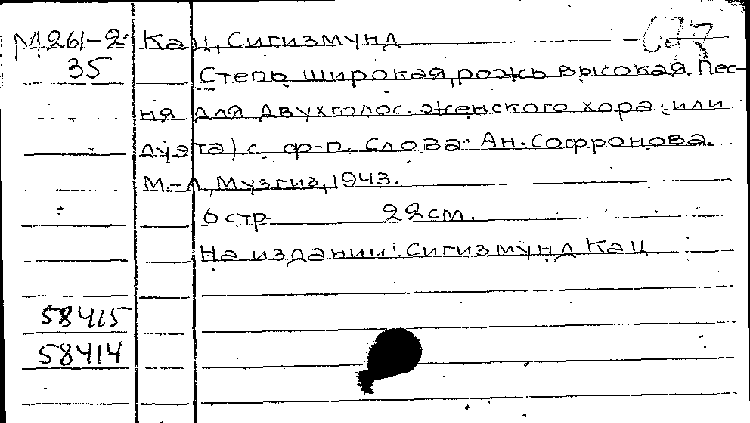 М261-2 Кац, Сигизмунд
35 Степь широкая, рожь высокая. Пес-
ня для двухголос. женского хора (или
дуэта) с ф-п. Слова Ан. Софронова.
М.-Л, Музгиз, 1943.
6 стр 22 см.
На издании: Сигизмунд Кац
58415
58414